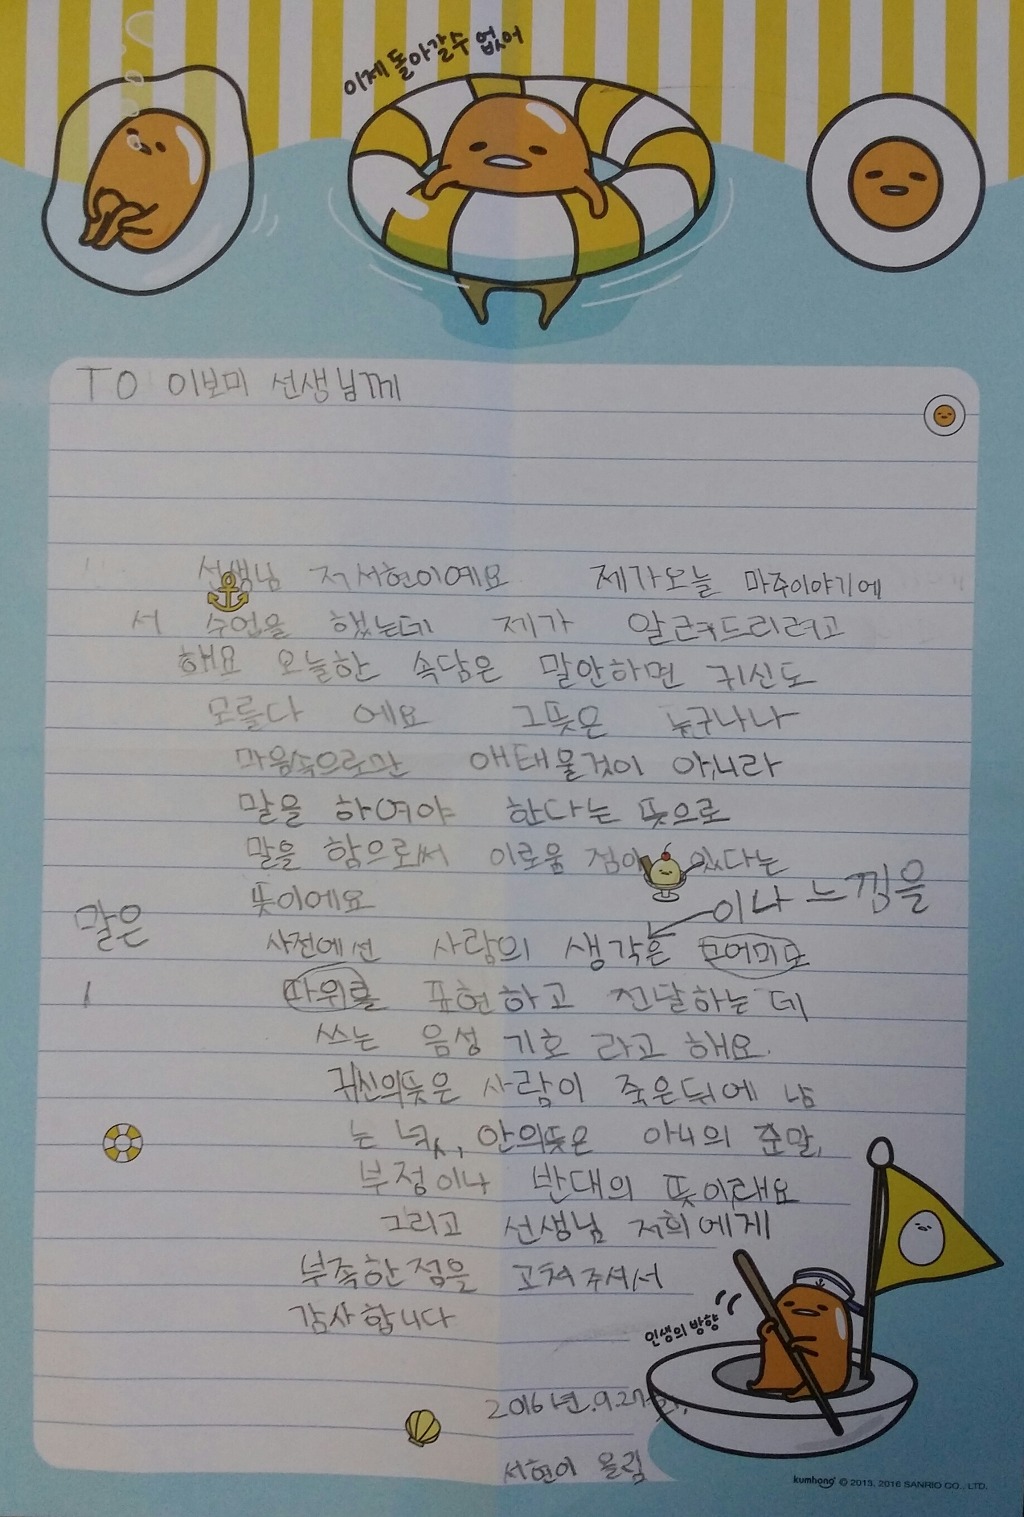 이제 돌아갈수 없어
TO 이보미 선생님께
선생님 저 서현이예요 제가오늘 마주이야기에
서 수업을 했는데 제가 알려드리려고
해요 오늘한 속담은 말안하면 귀신도
모른다 에요 그뜻은 누구나나
마음속으로만 애태울것이 아니라
말을 하여야 한다는 뜻으로
말을 함으로써 이로움 점이 있다는
뜻이에요
이나 느낌을
말은 사전에선 사람의 생각은
따위를 표현하고 전달하는 데
쓰는 음성 기호 라고 해요.
귀신의뜻은 사람이 죽은뒤에 남
는 넋, 안의뜻은 아니의 준말,
부정이나 반대의 뜻이래요
그리고 선생님 저희에게
부족한점을 고쳐주셔서
감사합니다
인생의 방향
2016년.9.27
서현이 올림
kumhong © 2013, 2016 SANRIO CO., LTD.